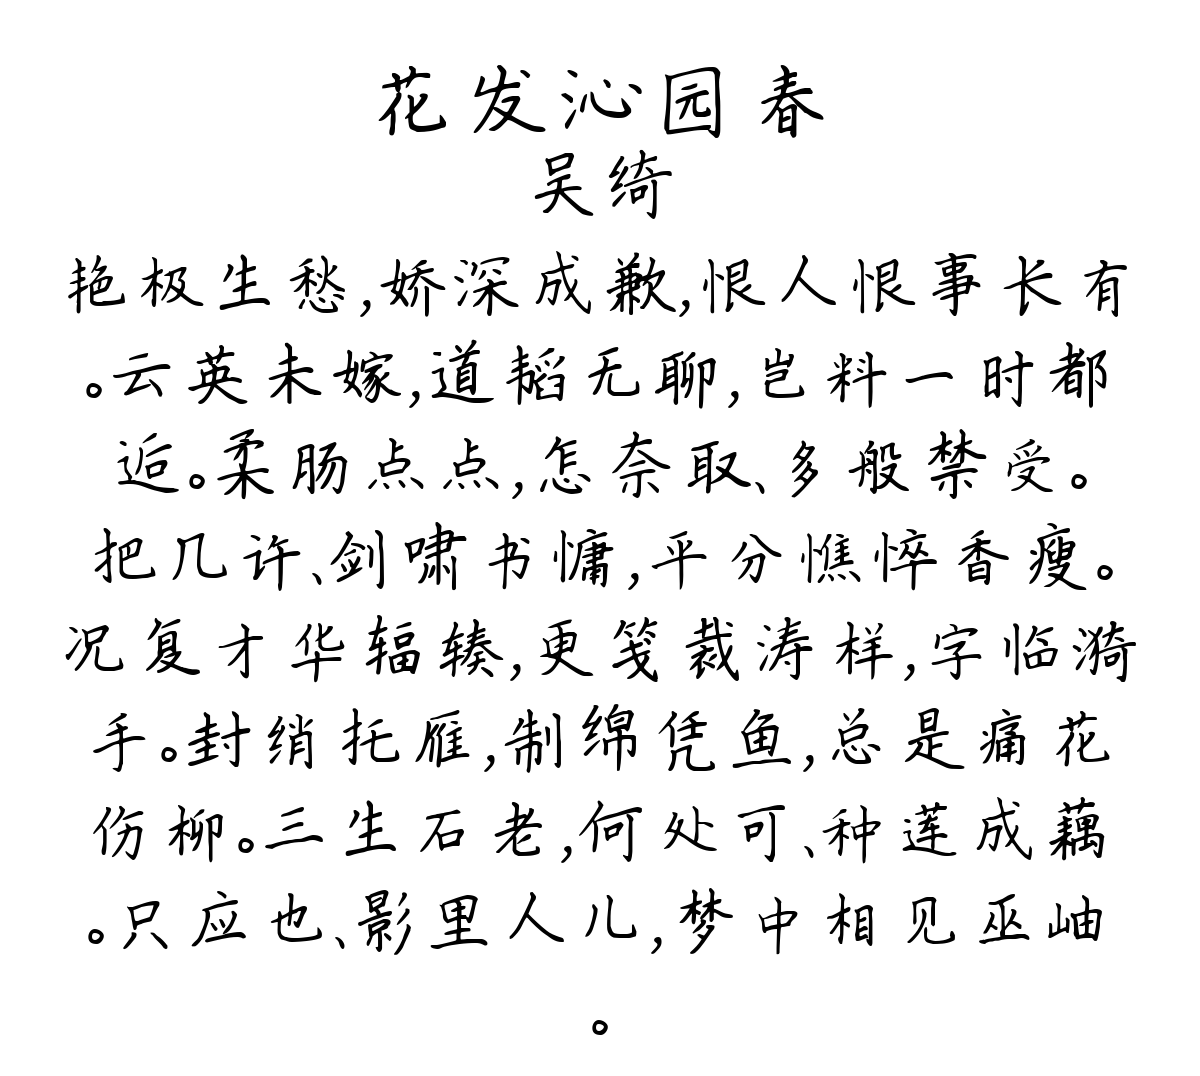 花发沁园春
吴绮
艳极生愁,娇深成歉,恨人恨事长有
。云英未嫁,道韬无聊,岂料一时都
逅。柔肠点点,怎奈取、多般禁受。
把几许、剑啸书慵,平分憔悴香瘦。
况复才华辐辏,更笺裁涛样,字临漪
手。封绡托雁,制绵凭鱼,总是痛花
伤柳。三生石老,何处可、种莲成藕
。只应也、影里人儿,梦中相见巫岫
。